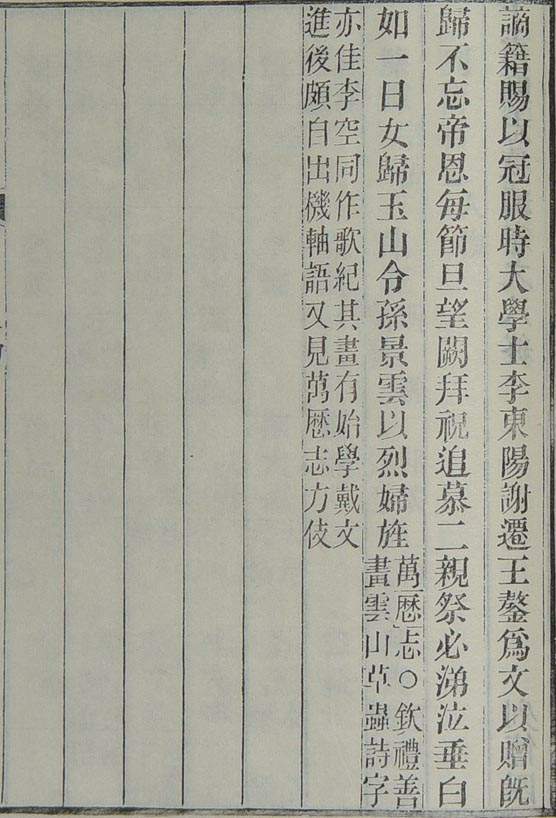 謫籍賜以冠服時大學士李東陽謝遷王鏊爲文以贈旣
歸不忘帝恩每節旦望闕拜祝追慕二親祭必涕泣垂白
如一日女歸玉山令孫景雲以烈婦旌
萬歷志○欽禮善
畫雲山草蟲詩字
亦佳李空同作歌紀其畫有始學戴文
進後頗自出機軸語又見萬歷志方伎